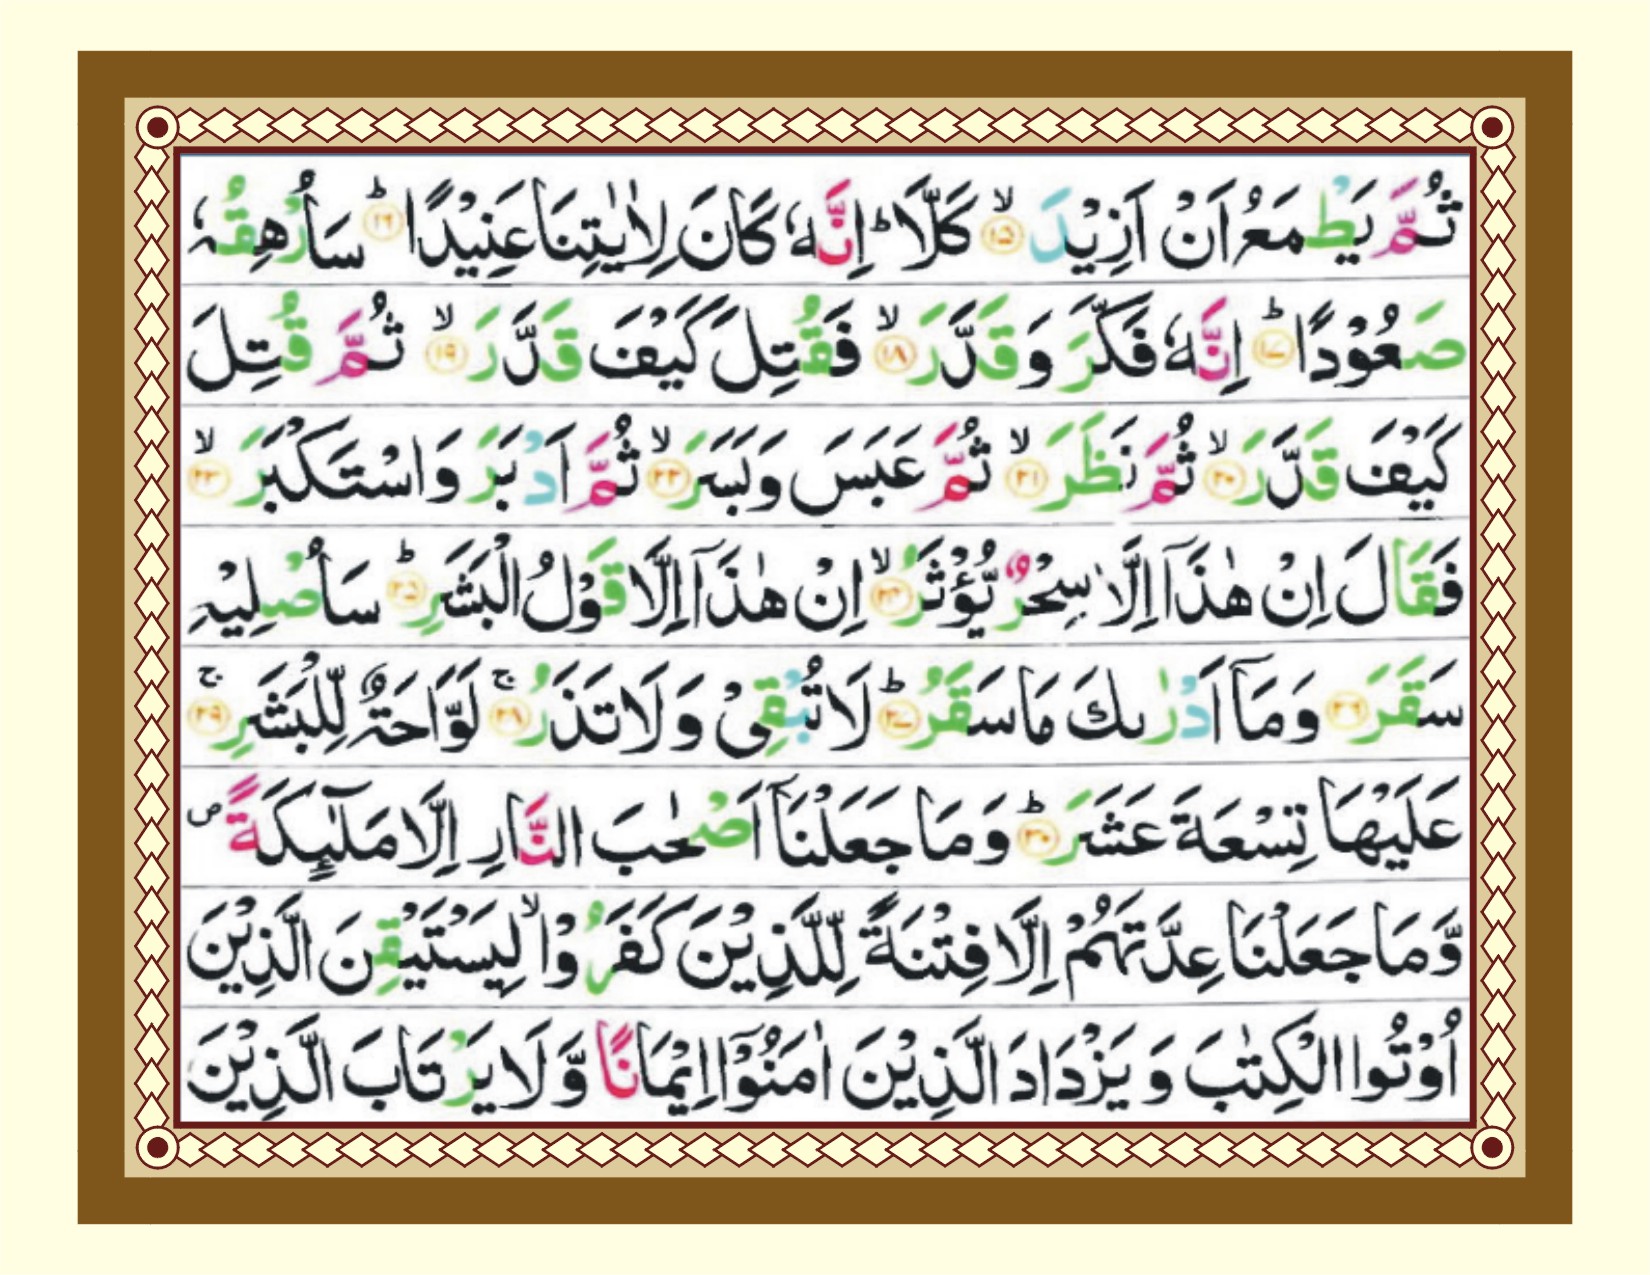 ثُمَّ يَطْمَعُ اَنْ اَزِيْدَ ۙ﴿۱۵﴾ كَلَّا ؕ اِنَّهٗ كَانَ لِاٰيٰتِنَا عَنِيْدًا ؕ﴿۱۶﴾ سَاُرْهِقُهٗ
صَعُوْدًا ؕ﴿۱۷﴾ اِنَّهٗ فَكَّرَ وَ قَدَّرَ ۙ﴿۱۸﴾ فَقُتِلَ كَيْفَ قَدَّرَ ۙ﴿۱۹﴾ ثُمَّ قُتِلَ
كَيْفَ قَدَّرَ ۙ﴿۲۰﴾ ثُمَّ نَظَرَ ۙ﴿۲۱﴾ ثُمَّ عَبَسَ وَ بَسَرَ ۙ﴿۲۲﴾ ثُمَّ اَدْبَرَ وَ اسْتَكْبَرَ ۙ﴿۲۳﴾
فَقَالَ اِنْ هٰذَاۤ اِلَّا سِحْرٌ يُّؤْثَرُ ۙ﴿۲۴﴾ اِنْ هٰذَاۤ اِلَّا قَوْلُ الْبَشَرِ ؕ﴿۲۵﴾ سَاُصْلِيْهِ
سَقَرَ ﴿۲۶﴾ وَ مَاۤ اَدْرٰىكَ مَا سَقَرُ ؕ﴿۲۷﴾ لَا تُبْقِيْ وَ لَا تَذَرُ ۚ﴿۲۸﴾ لَوَّاحَةٌ لِّلْبَشَرِ ۚ﴿۲۹﴾
عَلَيْهَا تِسْعَةَ عَشَرَ ؕ﴿۳۰﴾ وَ مَا جَعَلْنَاۤ اَصْحٰبَ النَّارِ اِلَّا مَلٰٓئِكَةً ۪
وَّ مَا جَعَلْنَا عِدَّتَهُمْ اِلَّا فِتْنَةً لِّلَّذِيْنَ كَفَرُوْا ۙ لِيَسْتَيْقِنَ الَّذِيْنَ
اُوْتُوا الْكِتٰبَ وَ يَزْدَادَ الَّذِيْنَ اٰمَنُوْۤا اِيْمَانًا وَّ لَا يَرْتَابَ الَّذِيْنَ